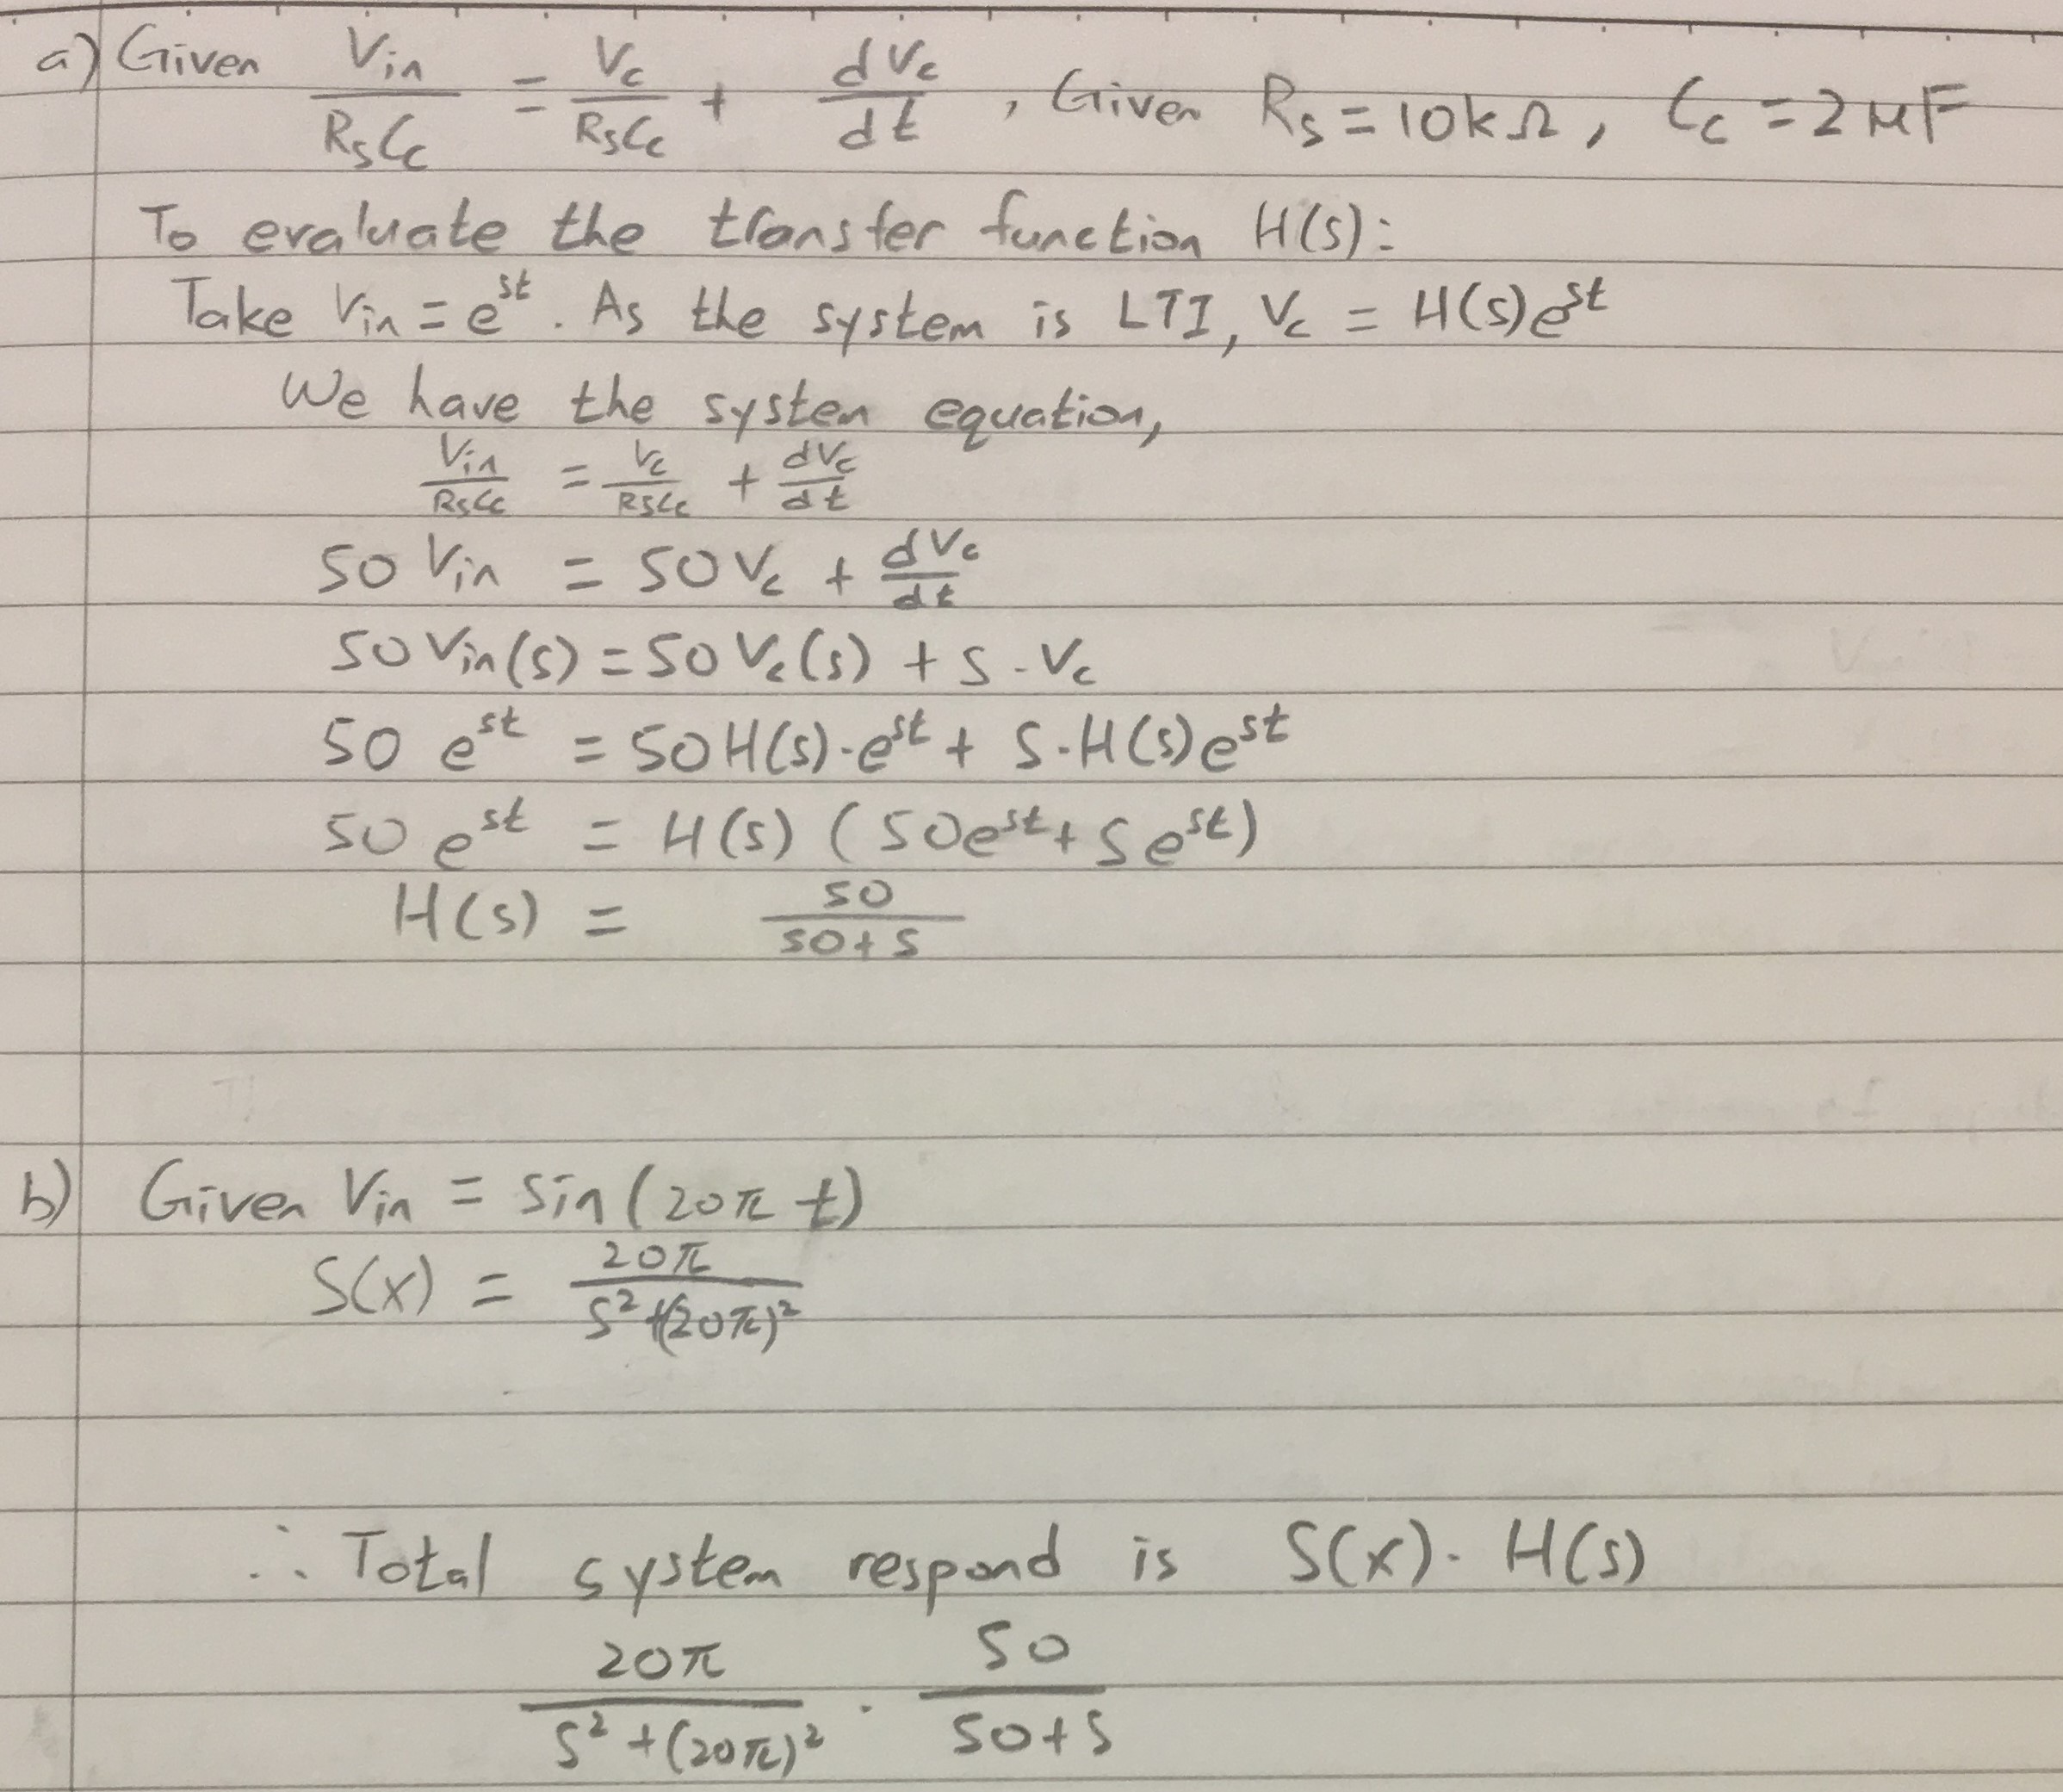 a) Given Vin/RsCc = Vc/RsCc + dVc/dt , Given Rs = 10kΩ, Cc = 2μF
To evaluate the transfer function H(s):
Take Vin = e^st. As the system is LTI, Vc = H(s)e^st
We have the system equation,
Vin/RsCc = Vc/RsCc + dVc/dt
50 Vin = 50 Vc + dVc/dt
50 Vin(s) = 50 Vc(s) + s · Vc
50 e^st = 50H(s)·e^st + s·H(s)e^st
50 e^st = H(s) (50e^st + se^st)
H(s) = 50/(50+s)
b) Given Vin = sin(20πt)
S(x) = 20π/(s²+(20π)²)
∴ Total system respond is S(x)· H(s)
20π/(s²+(20π)²) · 50/(50+s)